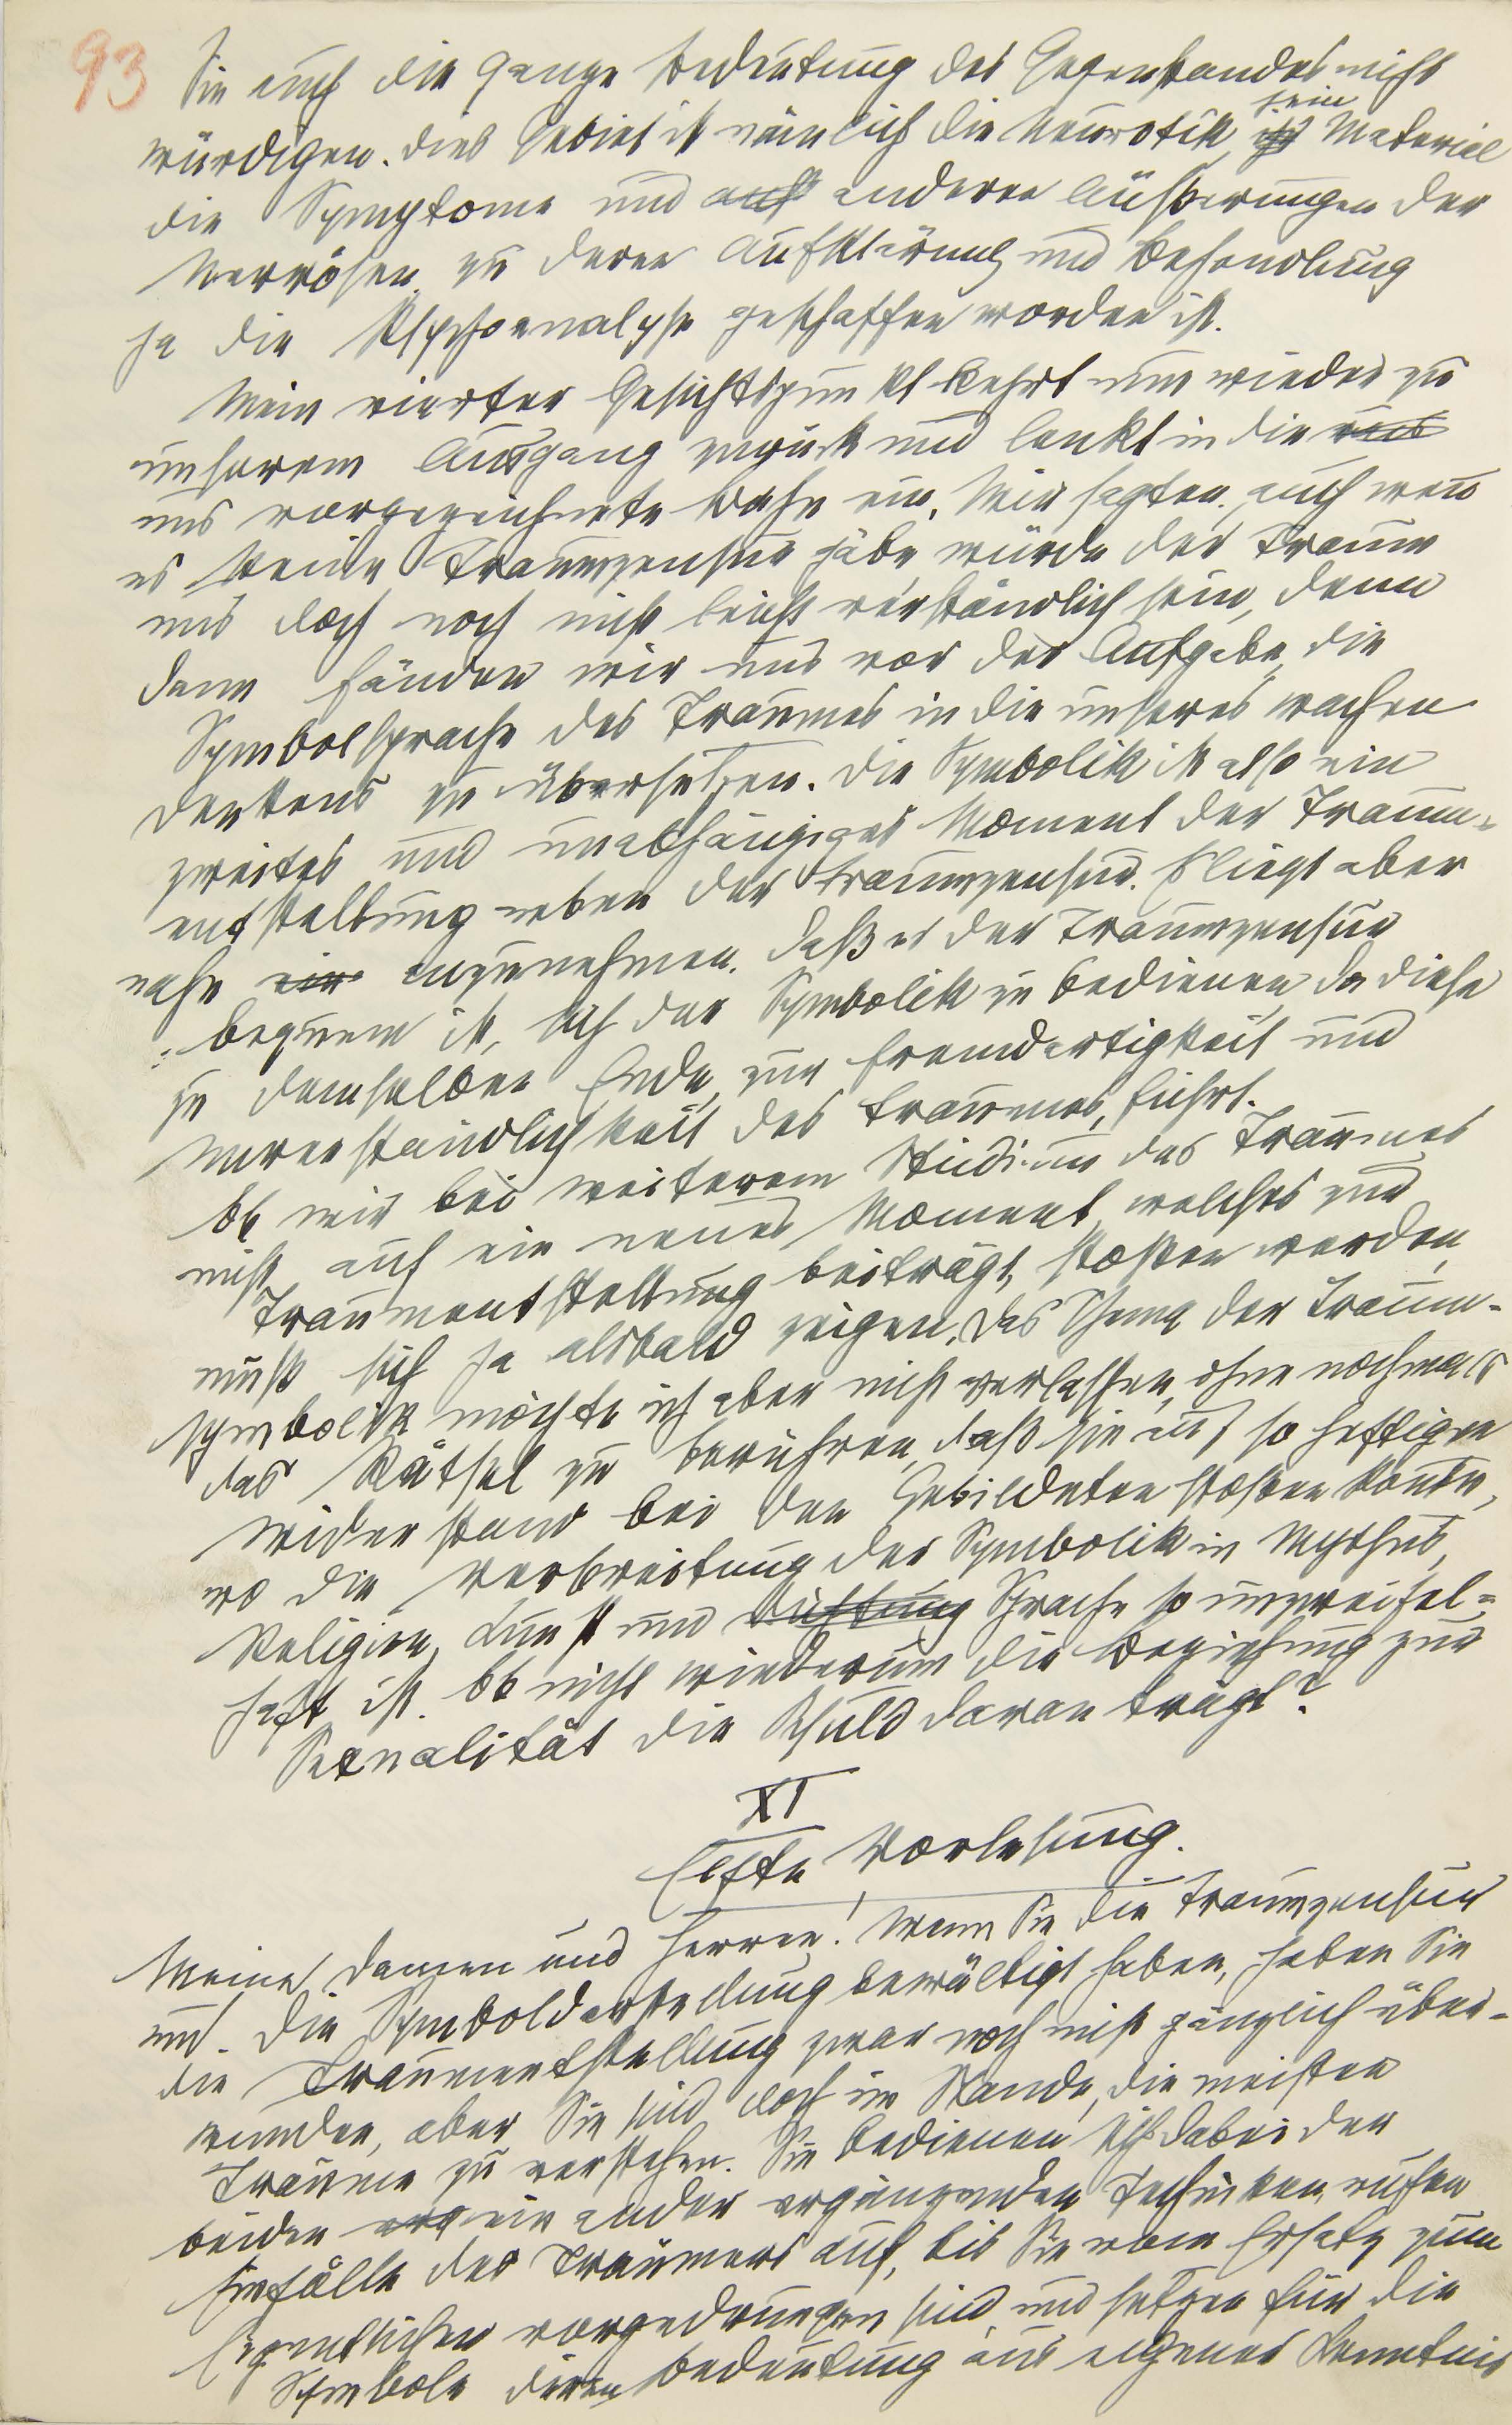 93
Sie auch die ganze Bedeutung des Gegenstandes nicht
würdigen. Dies Gebiet ist nämlich die Neurotik, sein Material
die Symptome und anderen Äußerungen der
Nervösen, zu deren Aufklärung und Behandlung
ja die Psychoanalyse geschaffen worden ist.
Mein vierter Gesichtspunkt kehrt nun wieder zu
unserem Ausgang zurück und lenkt in die
uns vorgezeichnete Bahn ein. Wir sagten, auch wenn
es keine Traumzensur gäbe würde der Traum
uns doch noch nicht leicht verständlich sein, denn
dann fänden wir uns vor der Aufgabe, die
Symbolsprache des Traumes in die unseres wachen
Denkens zu übersetzen. Die Symbolik ist also ein
zweites und unabhängiges Moment der Traum-
entstellung neben der Traumzensur. Es liegt aber
nahe anzunehmen, daß es der Traumzensur
bequem ist, sich der Symbolik zu bedienen, da diese
zu demselben Ende, zur Fremdartigkeit und
Unverständlichkeit des Traumes, führt.
Ob wir bei weiterem Studium des Traumes
nicht auf ein neues Moment, welches zur
Traumentstellung beiträgt, stoßen werden,
muß sich ja alsbald zeigen. Das Thema der Traum-
symbolik möchte ich aber nicht verlassen, ohne nochmals
das Rätsel zu berühren, daß sie auf so heftigen
Widerstand bei den Gebildeten stoßen konnte,
wo die Verbreitung der Symbolik in Mythus,
Religion, Kunst und Sprache so unzweifel-
haft ist. Ob nicht wiederum die Beziehung zur
Sexualität die Schuld daran trägt?
XI
Elfte Vorlesung.
Meine Damen und Herren! Wenn Sie die Traumzensur
und die Symboldarstellung bewältigt haben, haben Sie
die Traumentstellung zwar noch nicht gänzlich über-
wunden, aber Sie sind doch im Stande, die meisten
Träume zu verstehen. Sie bedienen sich dabei der
beiden einander ergänzenden Techniken, rufen
Einfälle des Träumers auf, bis Sie vom Ersatz zum
Eigentlichen vorgedrungen sind, und setzen für die
Symbole deren Bedeutung aus eigener Kenntnis